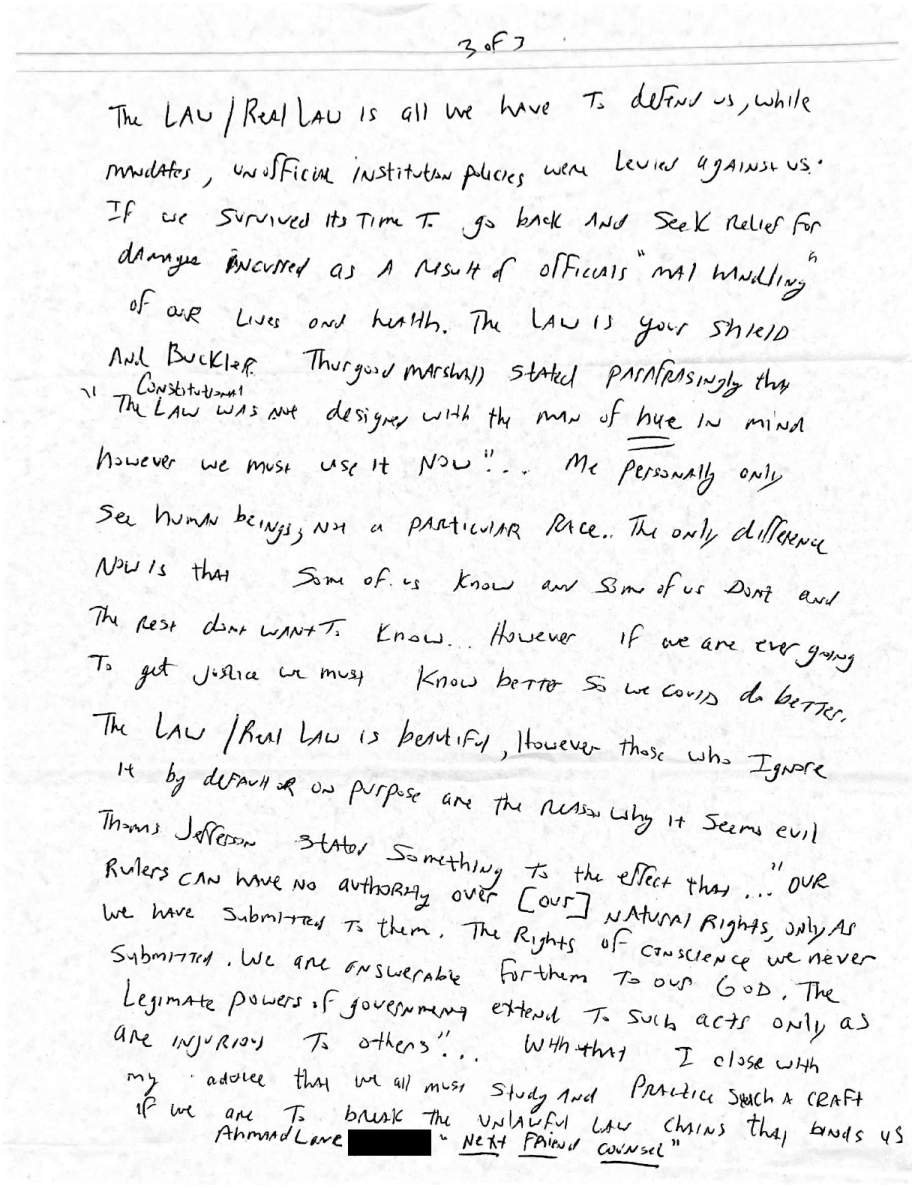 3 of 3
The LAW / Real LAW is all we have To defend us, while
mandates, unofficial institution policies were levied against us.
If we survived its Time To go back AND Seek Relief for
damages incurred as A result of officials "mal handling"
of our Lives and health. The LAW is your SHIELD
And Buckler. Thurgood Marshall stated parafrasingly that
Constitutional
"The LAW was not designed with the man of hue IN mind
however we must use it NOW"... Me personally only
See human beings, not a PARTICULAR Race.. The only difference
NOW is that Some of us Know and Some of us Dont and
The Rest dont WANT To Know... However if we are ever going
To get justice we must Know better So we could do better.
The LAW / Real LAW is beautiful, However those who Ignore
it by default OR on purpose are the reason why it Seems evil
Thomas Jefferson Stated Something To the effect that ... "OUR
Rulers CAN have NO authority over [our] NATURAL Rights, only As
we have Submitted To them. The Rights of conscience we never
Submitted. We are answerable for them To our GOD. The
Legimate powers of government extend To such acts only as
are INJURIOUS To others"... With that I close with
my advice that we all must Study AND PRACTICE Such A CRAFT
if we are To break The UNLAWFUL LAW CHAINS that binds us
Ahmad Lane "Next Friend Counsel"